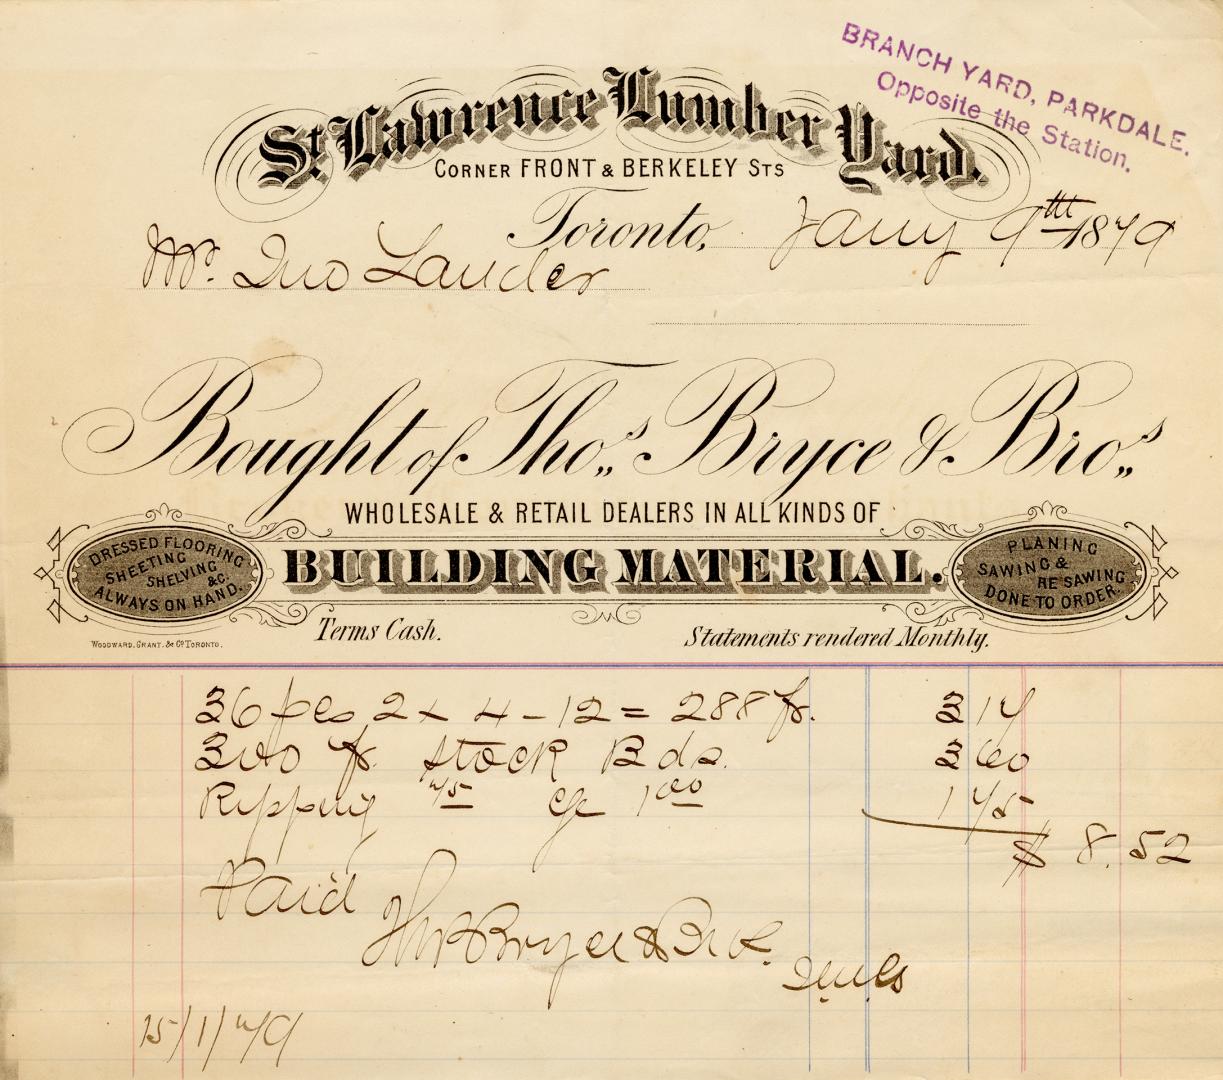 BRANCH YARD, PARKDALE.
Opposite the Station.
St Lawrence Lumber Yard.
CORNER FRONT & BERKELEY STS
Toronto, Jany 9th 1879
Mr. Jno Lauder
Bought of Thos. Bryce & Bros.
WHOLESALE & RETAIL DEALERS IN ALL KINDS OF
DRESSED FLOORING
SHEETING
SHELVING
&C.
ALWAYS ON HAND.
BUILDING MATERIAL.
PLANING
SAWING &
RE SAWING
DONE TO ORDER.
Terms Cash.
Statements rendered Monthly.
WOODWARD, GRANT, & Co TORONTO.
36 pcs 2 x 4 - 12 = 288 ft. 3 17
300 ft stock Bds. 3 60
Ripping 75 cge 1 00 1 75
$ 8.52
Paid
Thos Bryce & Bros.
15/1/79